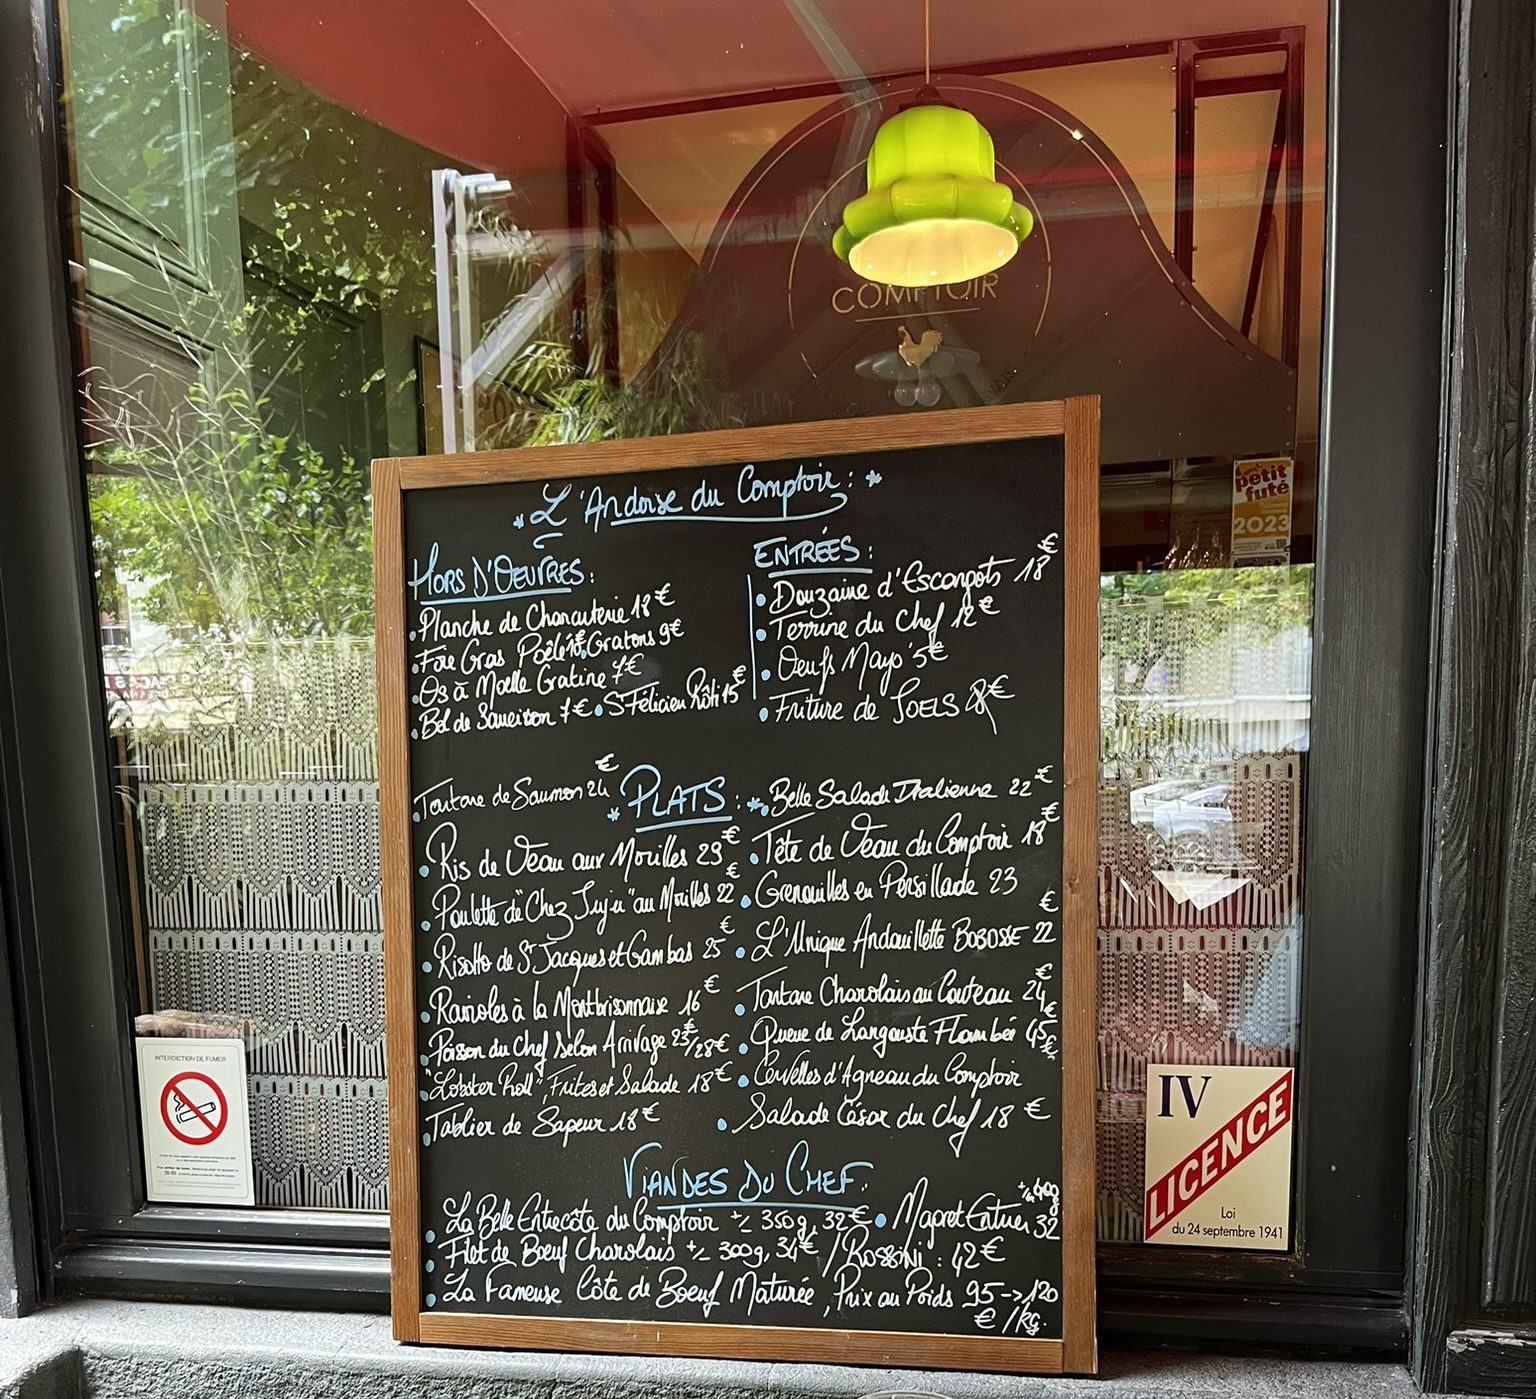 COMPTOIR
petit
futé
2023
* L'Ardoise du Comptoir : *
HORS D'OEUVRES :
Planche de Charcuterie 18€
Foie Gras Poêlé 18€ Gratons 9€
Os à Moelle Gratiné 7€
Bol de Saucisson 7€ St Félicien Rôti 15€
ENTRÉES :
Douzaine d'Escargots 18€
Terrine du Chef 12€
Oeufs Mayo 5€
Friture de JOELS €
* PLATS : *
Tartare de Saumon 24€
Ris de Veau aux Morilles 29€
Poulette de "Chez Juju" au Morilles 22€
Risotto de St Jacques et Gambas 25€
Ravioles à la Montbrisonnaise 16€
Poisson du Chef Selon Arrivage 23€/28€
"Lobster Roll", Frites et Salade 18€
Tablier de Sapeur 18€
Belle Salade Italienne 22€
Tête de Veau du Comptoir 18€
Grenouilles en Persillade 23€
L'Unique Andouillette BOBOSSE 22€
Tartare Charolais au Couteau 24€
Queue de Langouste Flambée 45€
Cervelles d'Agneau du Comptoir
Salade César du Chef 18€
VIANDES DU CHEF :
La Belle Entrecôte du Comptoir +/- 350g, 32€ Magret Entier +/- 400g 32
Filet de Boeuf Charolais +/- 300g, 34€ / Rossini : 42€
La Fameuse Côte de Boeuf Maturée, Prix au Poids 95->120
€/kg.
INTERDICTION DE FUMER
IV
LICENCE
Loi
du 24 septembre 1941